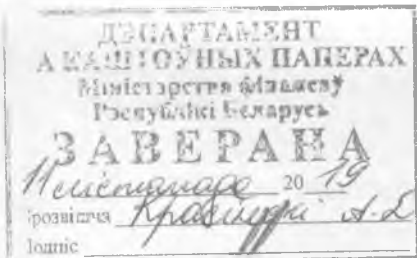 ДЭПАРТАМЕНТ
А КАШТОЎНЫХ ПАПЕРАХ
Міністэрства фінансаў
Рэспублікі Беларусь
ЗАВЕРАНА
11 лістапада 20 19
розвішча А.Д
Подпіс